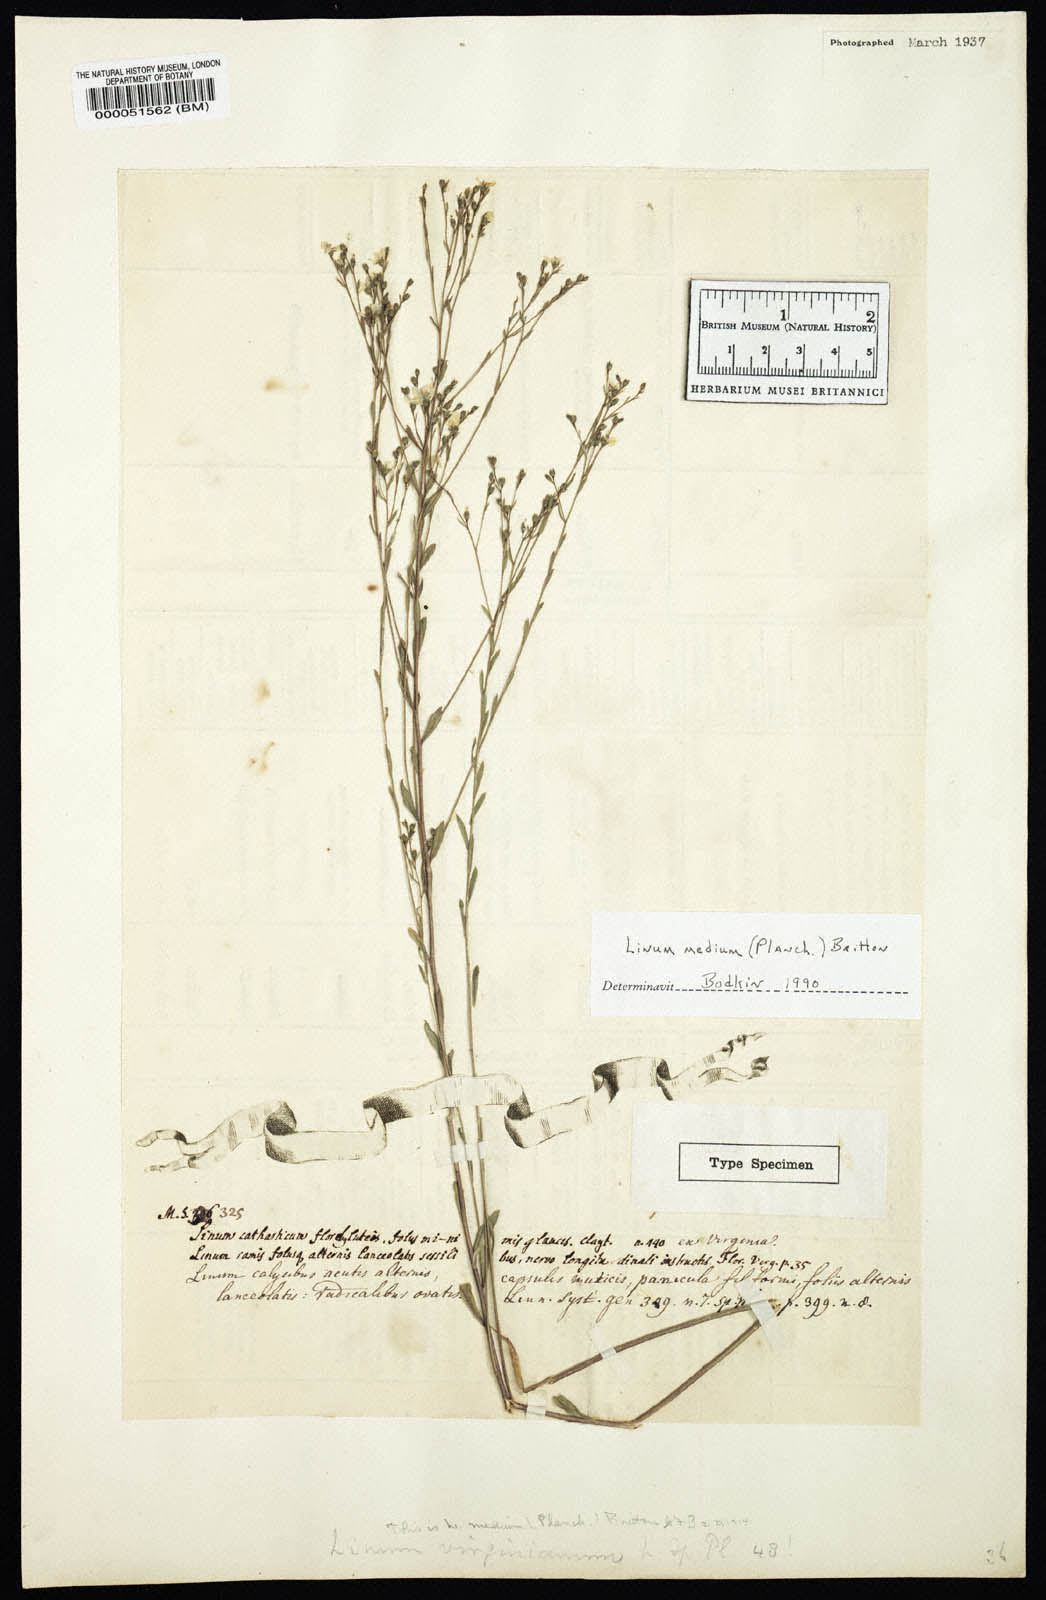 Photographed March 1937
THE NATURAL HISTORY MUSEUM, LONDON
DEPARTMENT OF BOTANY
000051562 (BM)
1 2
BRITISH MUSEUM (NATURAL HISTORY)
1 2 3 4 5
HERBARIUM MUSEI BRITANNICI
Linum medium (Planch.) Britton
Determinavit Bodkin 1990
Type Specimen
M.S. 325
Linum catharticum flore luteo, folis mi-ni mis glauces. Clayt. n. 440 ex Virginia.
Linum ramis foliisq alternis lanceolatis sessili bus, nervo longitu-dinali instructis. Flor. Virg. p. 35
Linum calycibus acutis alternis, capsulis muticis, panicula filiformi, foliis alternis
lanceolatis: radicalibus ovatis. Linn. Syst. gen 389. n. 7. Sp. p. 399. n. 8.
This is L. medium (Planch.) Britton
Linum virginianum L. sp. Pl 48!
36